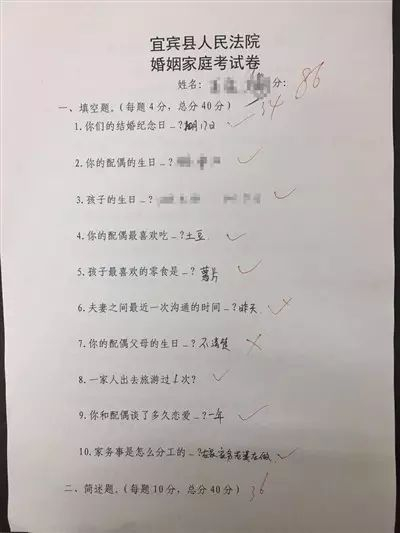 宜宾县人民法院
婚姻家庭考试卷
姓名: 分: 86
一、填空题。(每题 4 分,总分 40 分) 34
1.你们的结婚纪念日_?月17日
2.你的配偶的生日_?
3.孩子的生日_?
4.你的配偶最喜欢吃_?土豆
5.孩子最喜欢的零食是_?薯片
6.夫妻之间最近一次沟通的时间_?昨天
7.你的配偶父母的生日_?不清楚
8.一家人出去旅游过 6 次?
9.你和配偶谈了多久恋爱_?一年
10.家务事是怎么分工的_?家务老婆在做
二、简述题。(每题 10 分,总分 40 分) 36